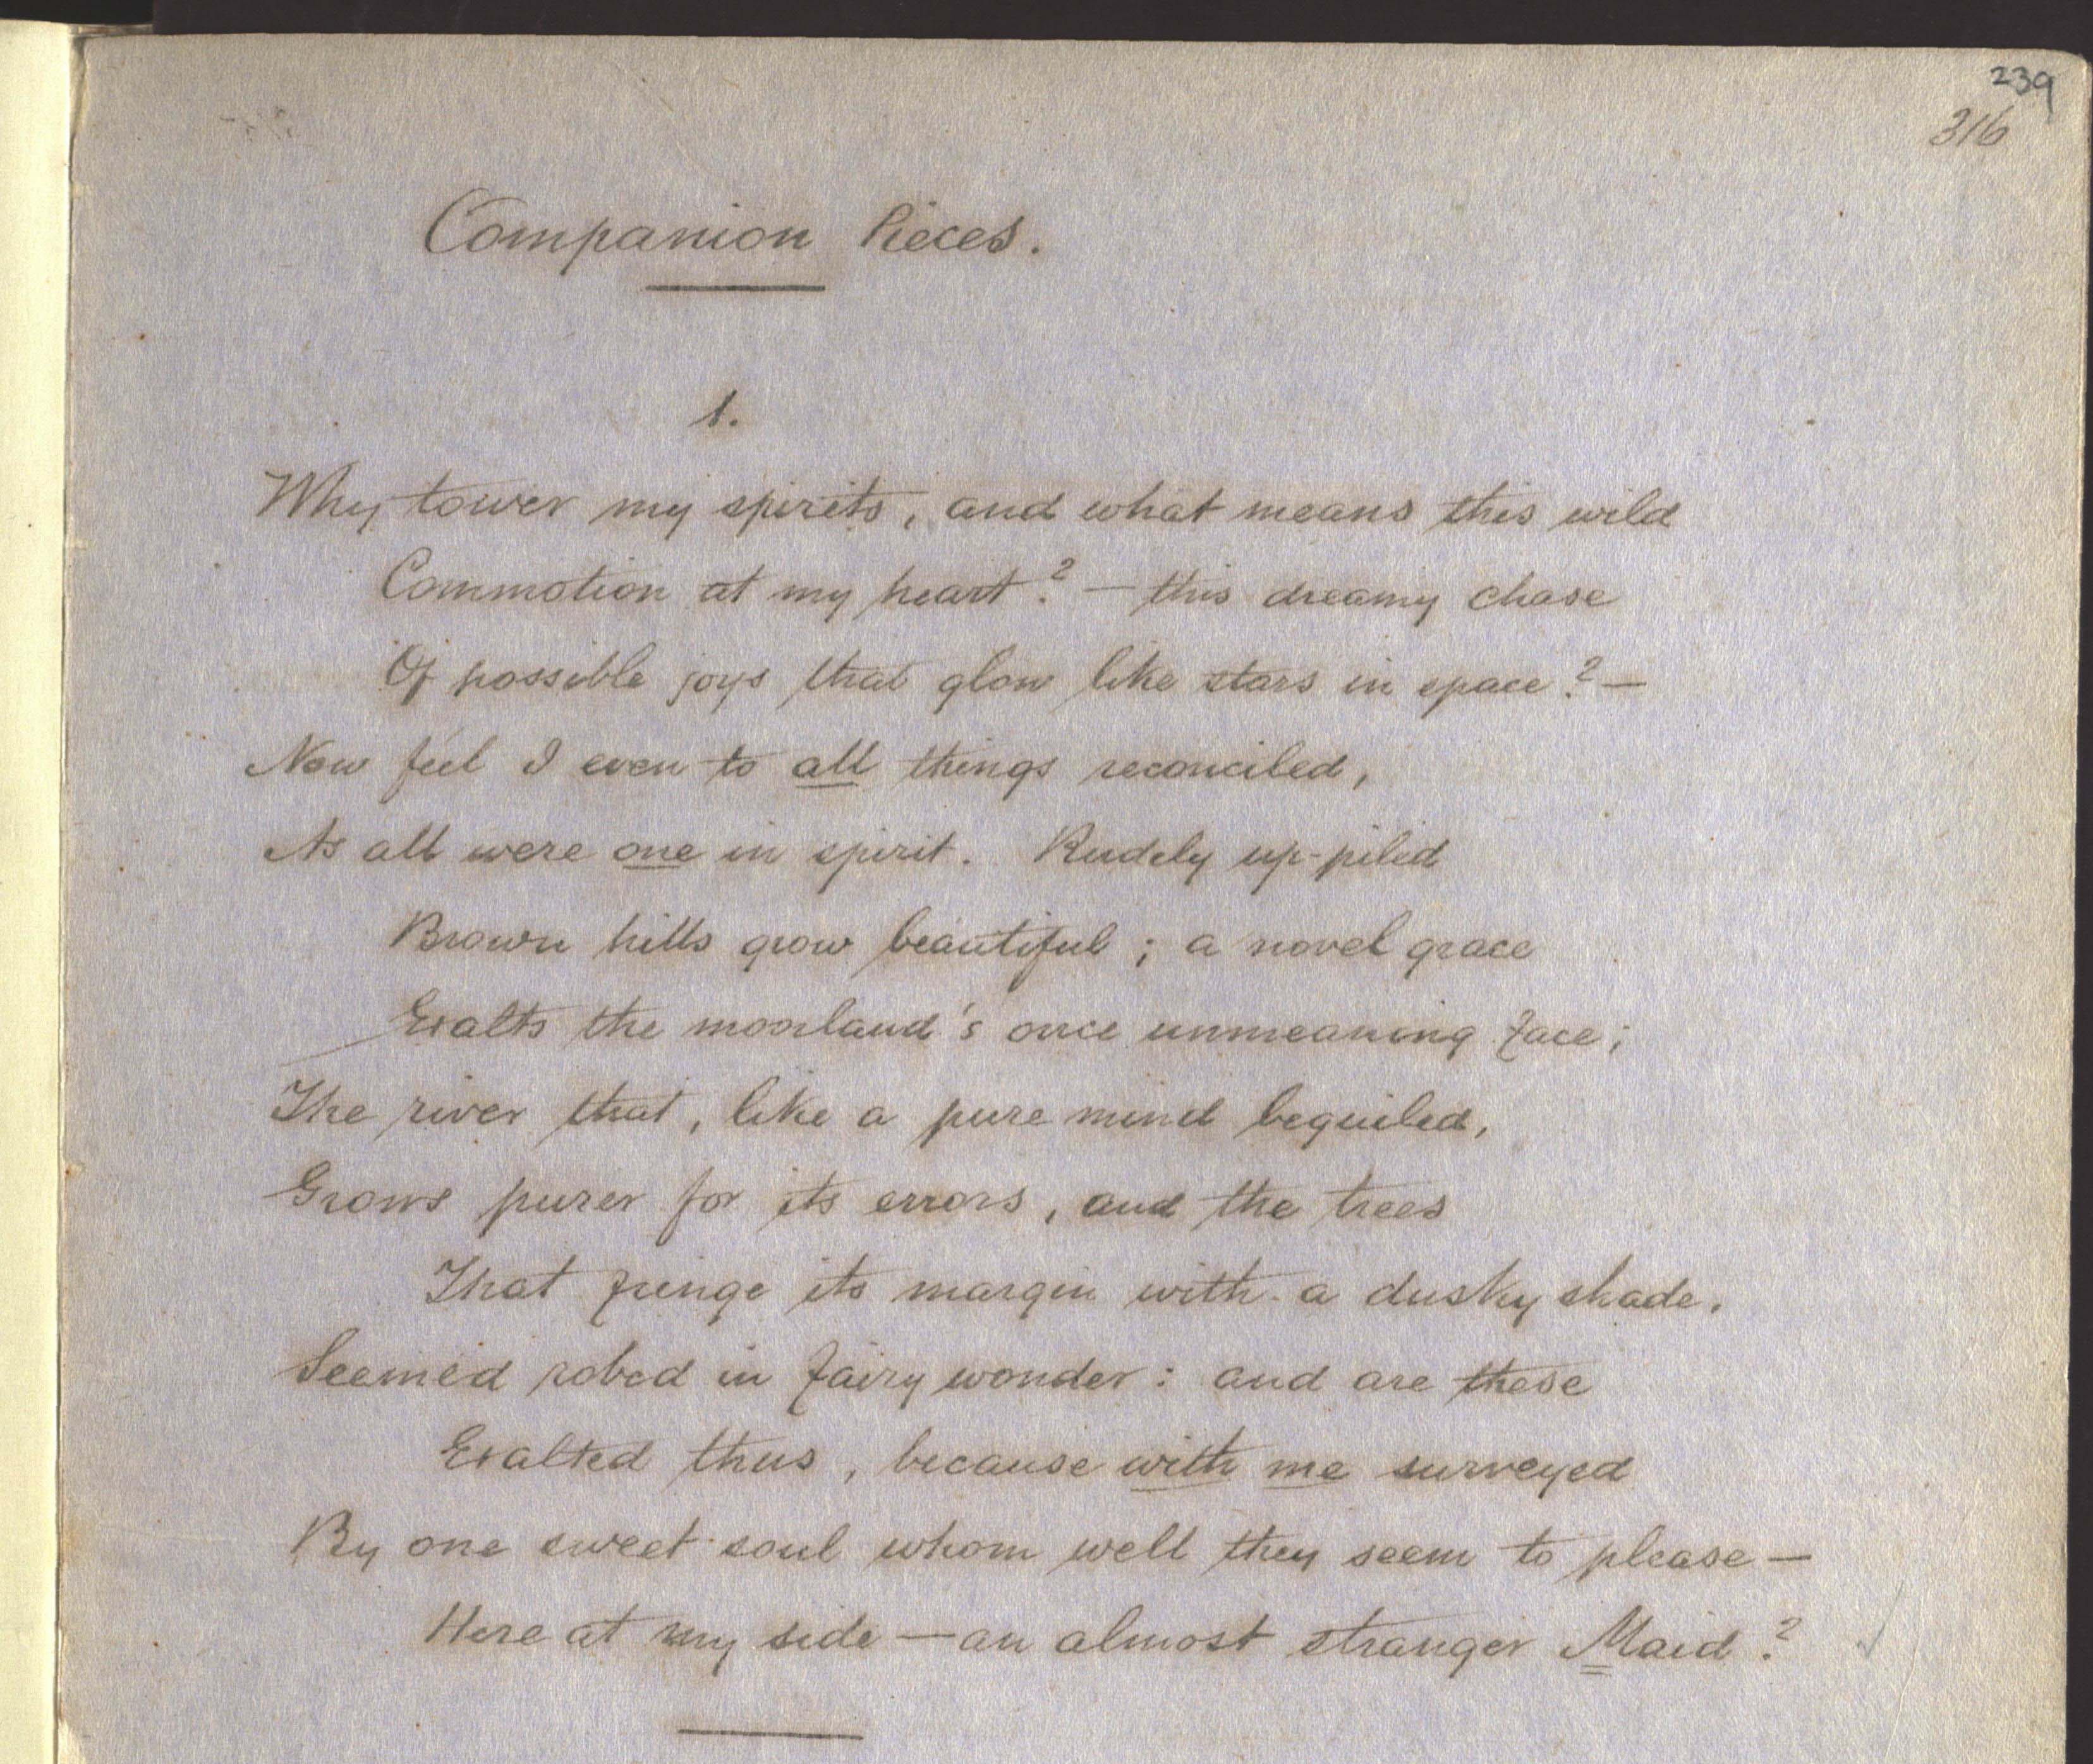 239
316
Companion Pieces.
1.
Why tower my spirits, and what means this wild
Commotion at my heart? — this dreamy chase
Of possible joys that glow like stars in space? —
Now feel I even to all things reconciled,
As all were one in spirit. Rudely up-piled
Brown hills grow beautiful; a novel grace
Exalts the moorland's once unmeaning face;
The river that, like a pure mind beguiled,
Grows purer for its errors, and the trees
That fringe its margin with a dusky shade,
Seemed robed in fairy wonder: and are these
Exalted thus, because with me surveyed
By one sweet soul whom well they seem to please —
Here at my side — an almost stranger Maid?